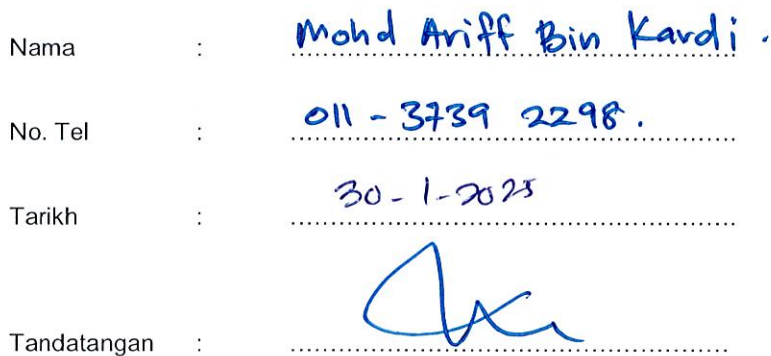 Nama : Mohd Ariff Bin Kardi.
No. Tel : 011 - 3739 2298.
Tarikh : 30 - 1 - 2025
Tandatangan :